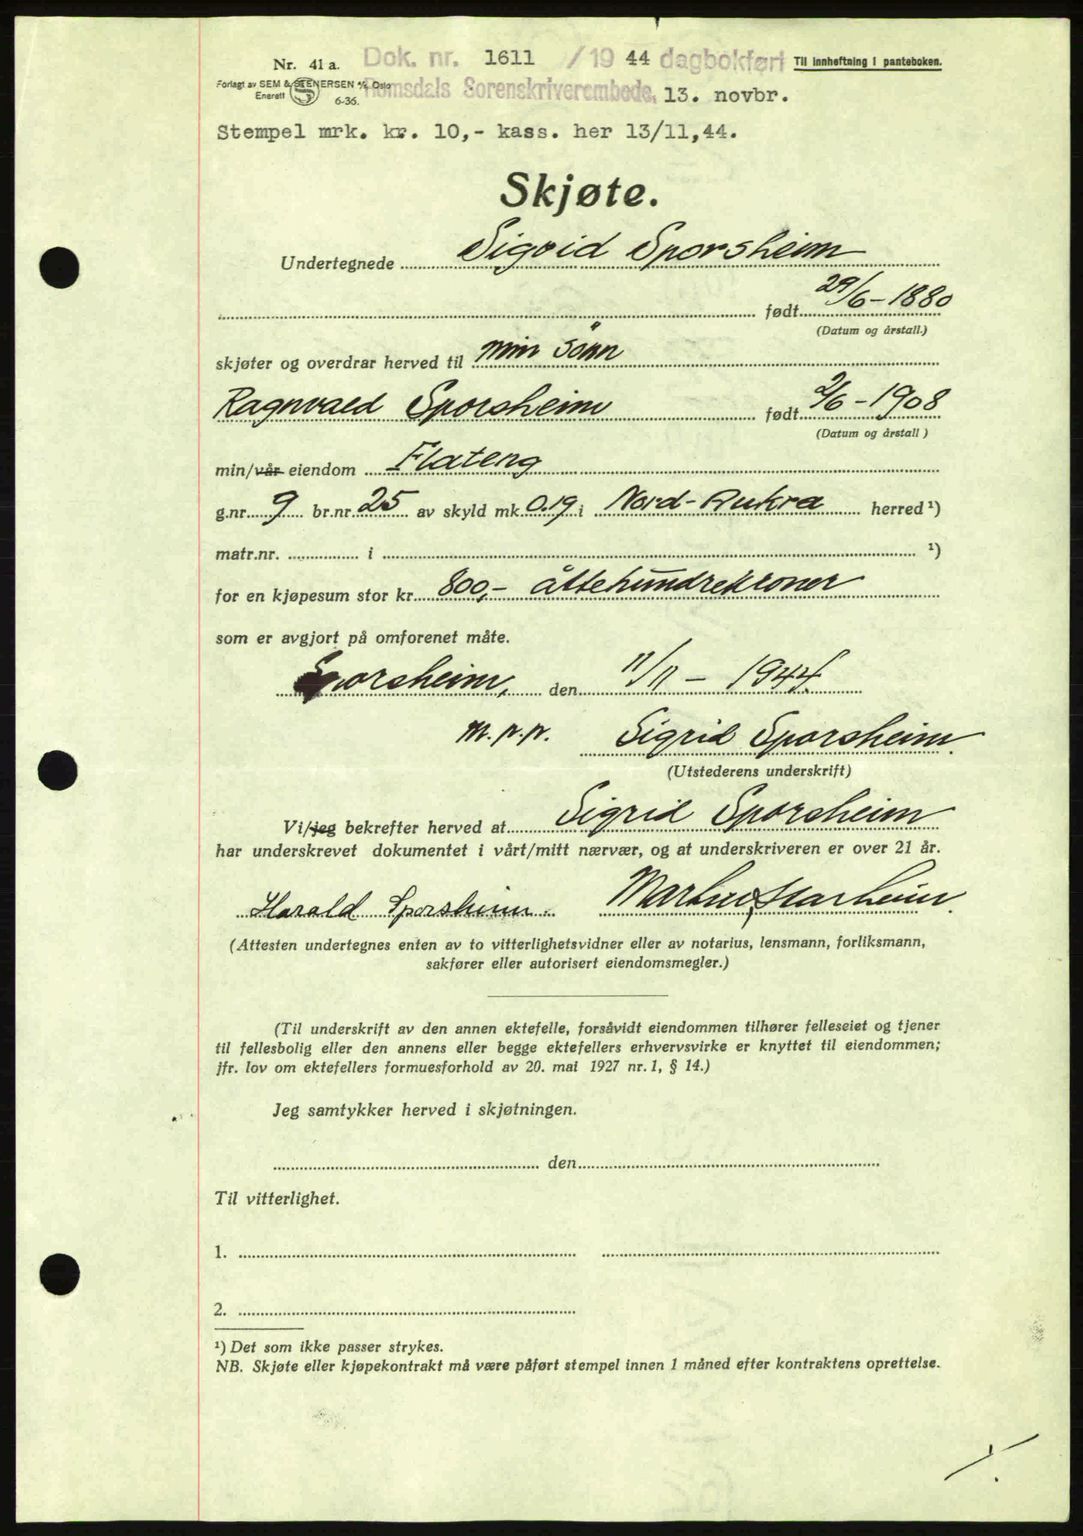 Nr. 41 a. Dok. nr. 1611 /19 44 dagbokført Til innheftning i panteboken.
Forlagt av SEM & STENERSEN A/S Oslo Romsdals Sorenskriverembede, 13. novbr.
Enerett S 6-36.
Stempel mrk. kr. 10,- kass. her 13/11,44.
Skjøte.
Undertegnede Sigrid Sporsheim
født 29/6-1880
(Datum og årstall.)
skjøter og overdrar herved til min sönn
Ragnvald Sporsheim født 2/6-1908
(Datum og årstall )
min/vår eiendom Flateng
g.nr. 9 br.nr. 25 av skyld mk. 0.19 i Nord-Aukra herred ¹)
matr.nr. i ¹)
for en kjøpesum stor kr. 800,- åttehundrekroner
som er avgjort på omforenet måte.
Sporsheim, den 11/11 - 1944.
m.p.p. Sigrid Sporsheim.
(Utstederens underskrift)
Vi/jeg bekrefter herved at Sigrid Sporsheim
har underskrevet dokumentet i vårt/mitt nærvær, og at underskriveren er over 21 år.
Harald Sporsheim.
(Attesten undertegnes enten av to vitterlighetsvidner eller av notarius, lensmann, forliksmann,
sakfører eller autorisert eiendomsmegler.)
(Til underskrift av den annen ektefelle, forsåvidt eiendommen tilhører felleseiet og tjener
til fellesbolig eller den annens eller begge ektefellers erhvervsvirke er knyttet til eiendommen;
jfr. lov om ektefellers formuesforhold av 20. mai 1927 nr. 1, § 14.)
Jeg samtykker herved i skjøtningen.
den
Til vitterlighet.
1.
2.
¹) Det som ikke passer strykes.
NB. Skjøte eller kjøpekontrakt må være påført stempel innen 1 måned efter kontraktens oprettelse.